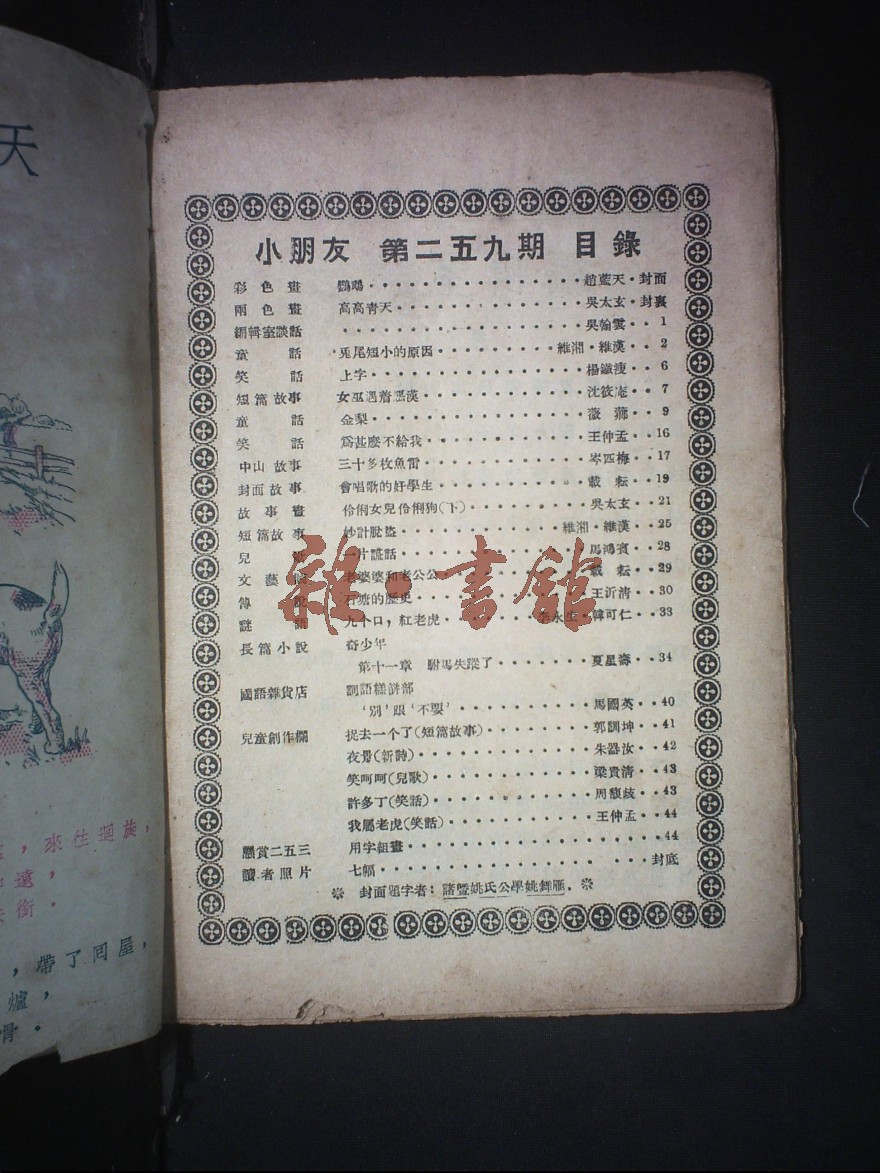 天
小朋友 第二五九期 目錄
彩色畫 鸚鵡 趙藍天・封面
兩色畫 高高青天 吳太玄・封裏
編輯室談話 吳翰雲 1
童話 兎尾短小的原因 維湘・維漢 2
笑話 上字 楊鐵痩 6
短篇故事 女巫遇着惡漢 沈筱庵 7
童話 金梨 9
笑話 爲甚麼不給我 王仲孟 16
中山故事 三十多枚魚雷 岑四梅 17
封面故事 會唱歌的好學生 載耘 19
故事畫 伶俐女兒伶俐狗(下) 吳太玄 21
短篇故事 妙計脫盜 維湘・維漢 25
兒 一片謊話 馬鴻賓 28
文藝 老婆婆和老公公 載耘 29
傳說 石塘的歷史 王沂清 30
謎語 九个口，紅老虎 李永生・韓可仁 33
長篇小說 奇少年
第十一章 駙馬失蹤了 夏星壽 34
國語雜貨店 詞語糕餅部
‘別’跟‘不要’ 馬國英 40
兒童創作欄 捉去一个了(短篇故事) 郭訓坤 41
夜景(新詩) 朱器汝 42
笑呵呵(兒歌) 梁貴清 43
許多丁(笑話) 周馥歧 43
我屬老虎(笑話) 王仲孟 44
懸賞二五三 用字組畫 44
讀者照片 七幅 封底
※ 封面題字者：諸曁姚氏公學姚舞雁．※
雜・書館
，來往迴旋，
遠，
銜．
，帶了同屋，
爐，
骨．